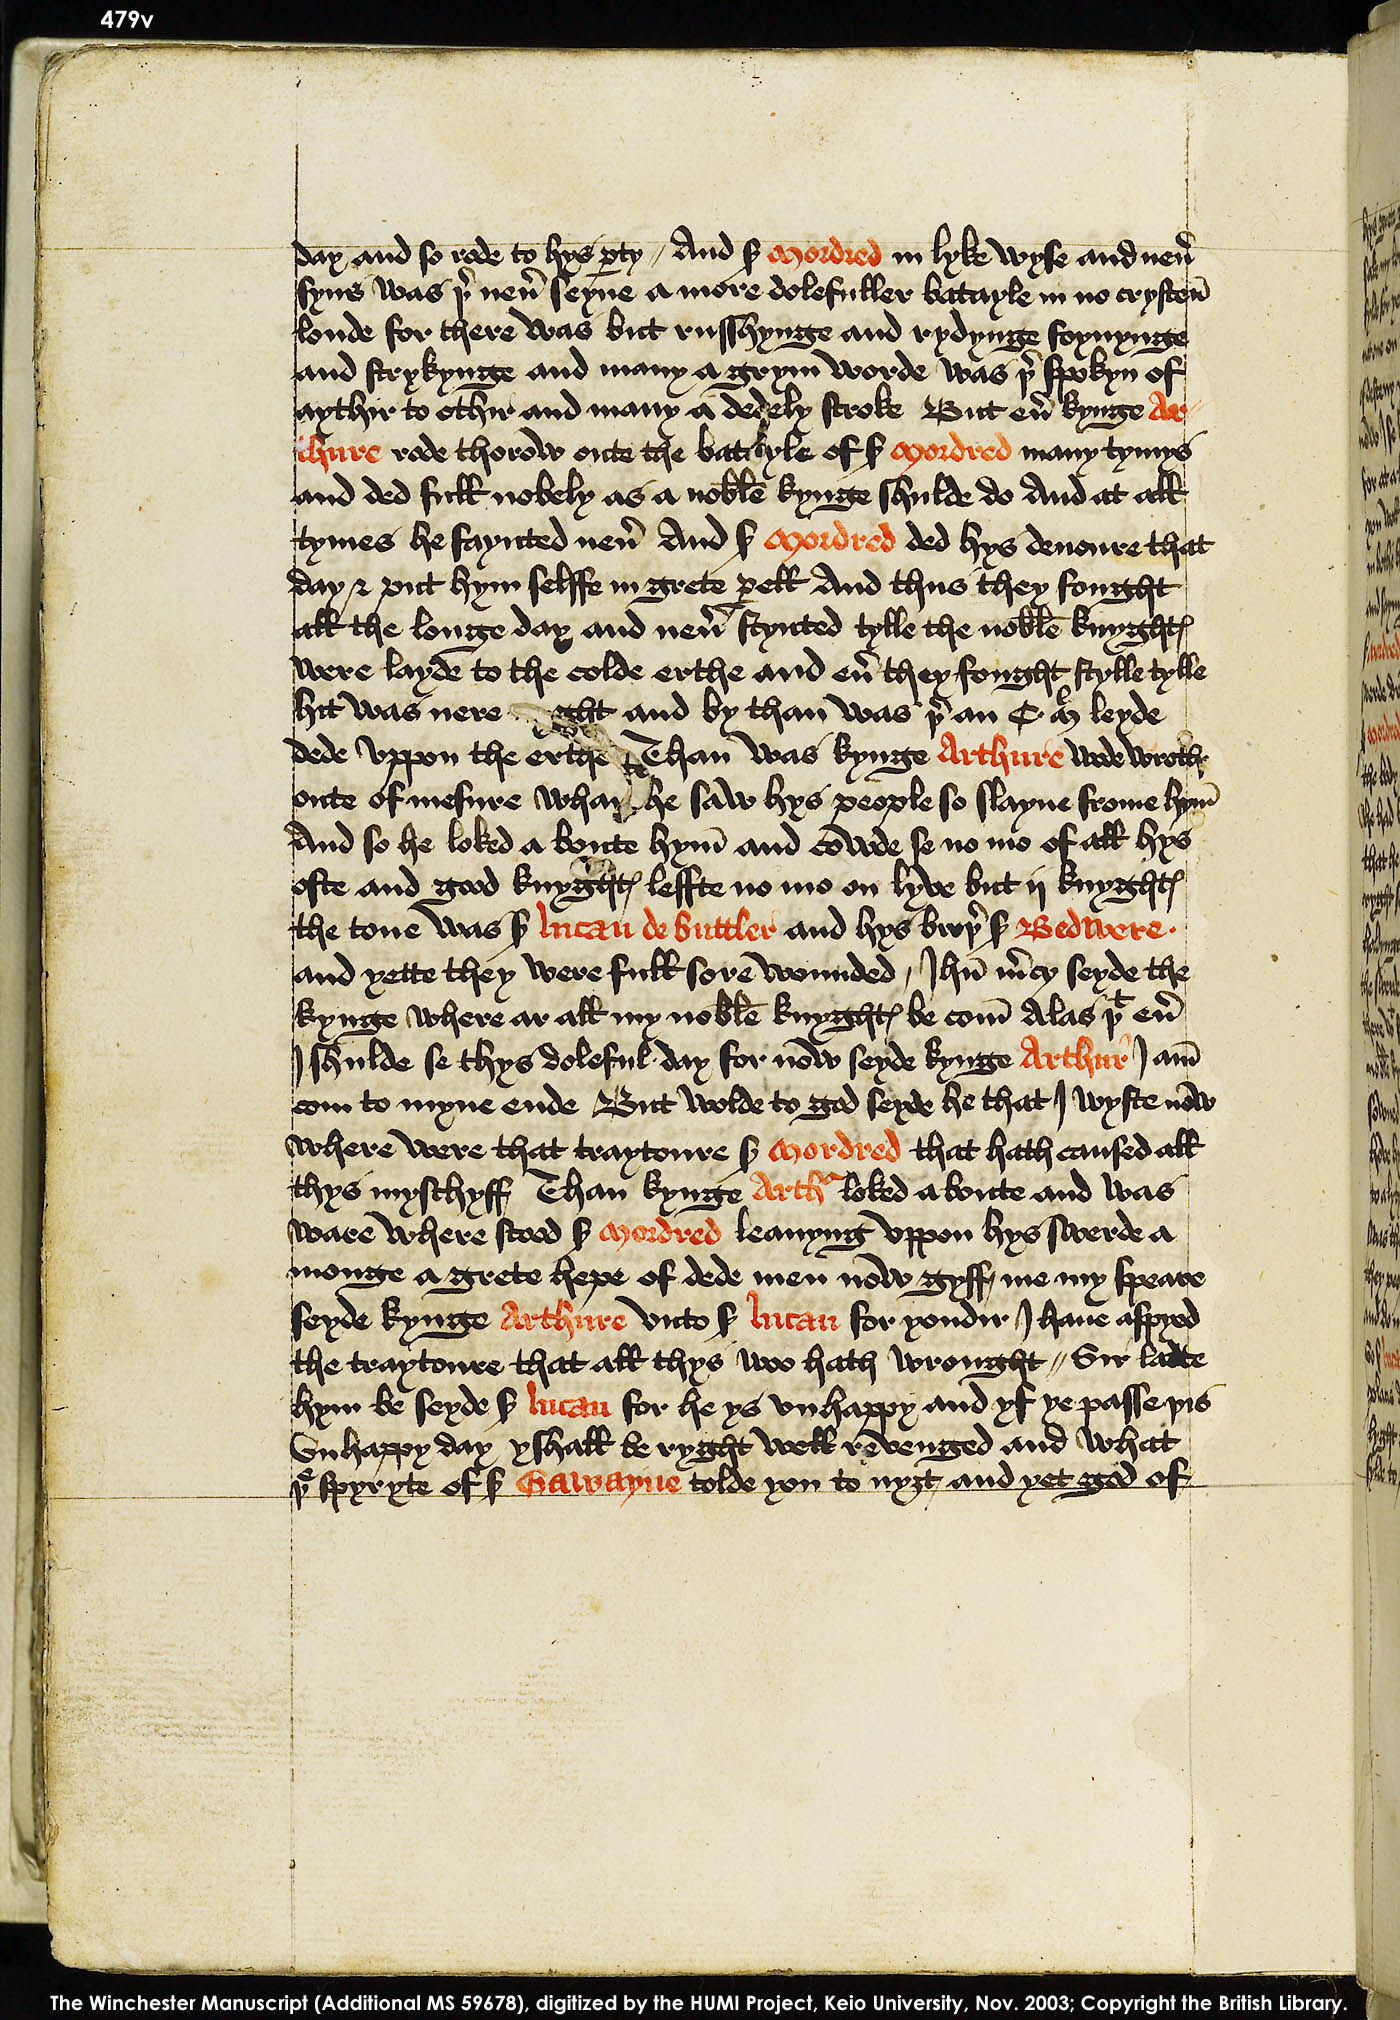 479v
day and so rode to hys ꝑty // And sͬ Mordred in lyke wyse and neuͬ
syns was þͬ neuͬ seyne a more dolefuller batayle in no crysten̄
londe for there was but russhynge and rydynge foynynge
and strykynge and many a grym worde was þͬ spokyn of
aythir to othir and many a dedely stroke But euͬ kynge Ar-
thure rode thorow oute the batayle of sͬ Mordred many tymys
and ded full nobely as a noble kynge shulde do And at all
tymes he faynted neuͬ And sͬ Mordred ded hys devoure that
day & put hym selffe in grete ꝑell And thus they fought
all the longe day and neuͬ stynted tylle the noble knyghtꝭ
were layde to the colde erthe and euͬ they fought stylle tylle
hit was nere ght and by than was þͬ an C Mͪ leyde
dede vppon the erthe Than was kynge Arthure wode wrothe
oute of mesure whan he saw hys people so slayne frome hym̄
And so he loked a boute hym̄ and cowde se no mo of all hys
oste and good knyghtꝭ leffte no mo on lyve but ij knyghtꝭ
the tone was sͬ lucan de buttler and hys broþͬ sͬ Bedwere .
and yette they were full sore wounded / Jhū mͬcy seyde the
kynge where ar all my noble knyghtꝭ be com̄ Alas þͭ euͬ
I shulde se thys doleful day for now seyde kynge Arthurͬ I am̄
com to myne ende But wolde to god seyde he that I wyste now
where were that traytoure sͬ Mordred that hath caused all
thys myschyff Than kynge Arthͬ loked a boute and was
ware where stood sͬ Mordred leanyng vppon hys swerde a
monge a grete hepe of dede men now gyff me my speare
seyde kynge Arthure vnto sͬ lucan for yondir I haue aspyed
the traytoure that all thys woo hath wrought // Sir latte
hym be seyde sͬ lucan for he ys vnhappy and yf ye passe þis
vnhappy day y shall be ryght well revenged and what
þͤ spyryte of sͬ Gawayne tolde you to nyȝt / and yet god of
The Winchester Manuscript (Additional MS 59678), digitized by the HUMI Project, Keio University, Nov. 2003; Copyright the British Library.